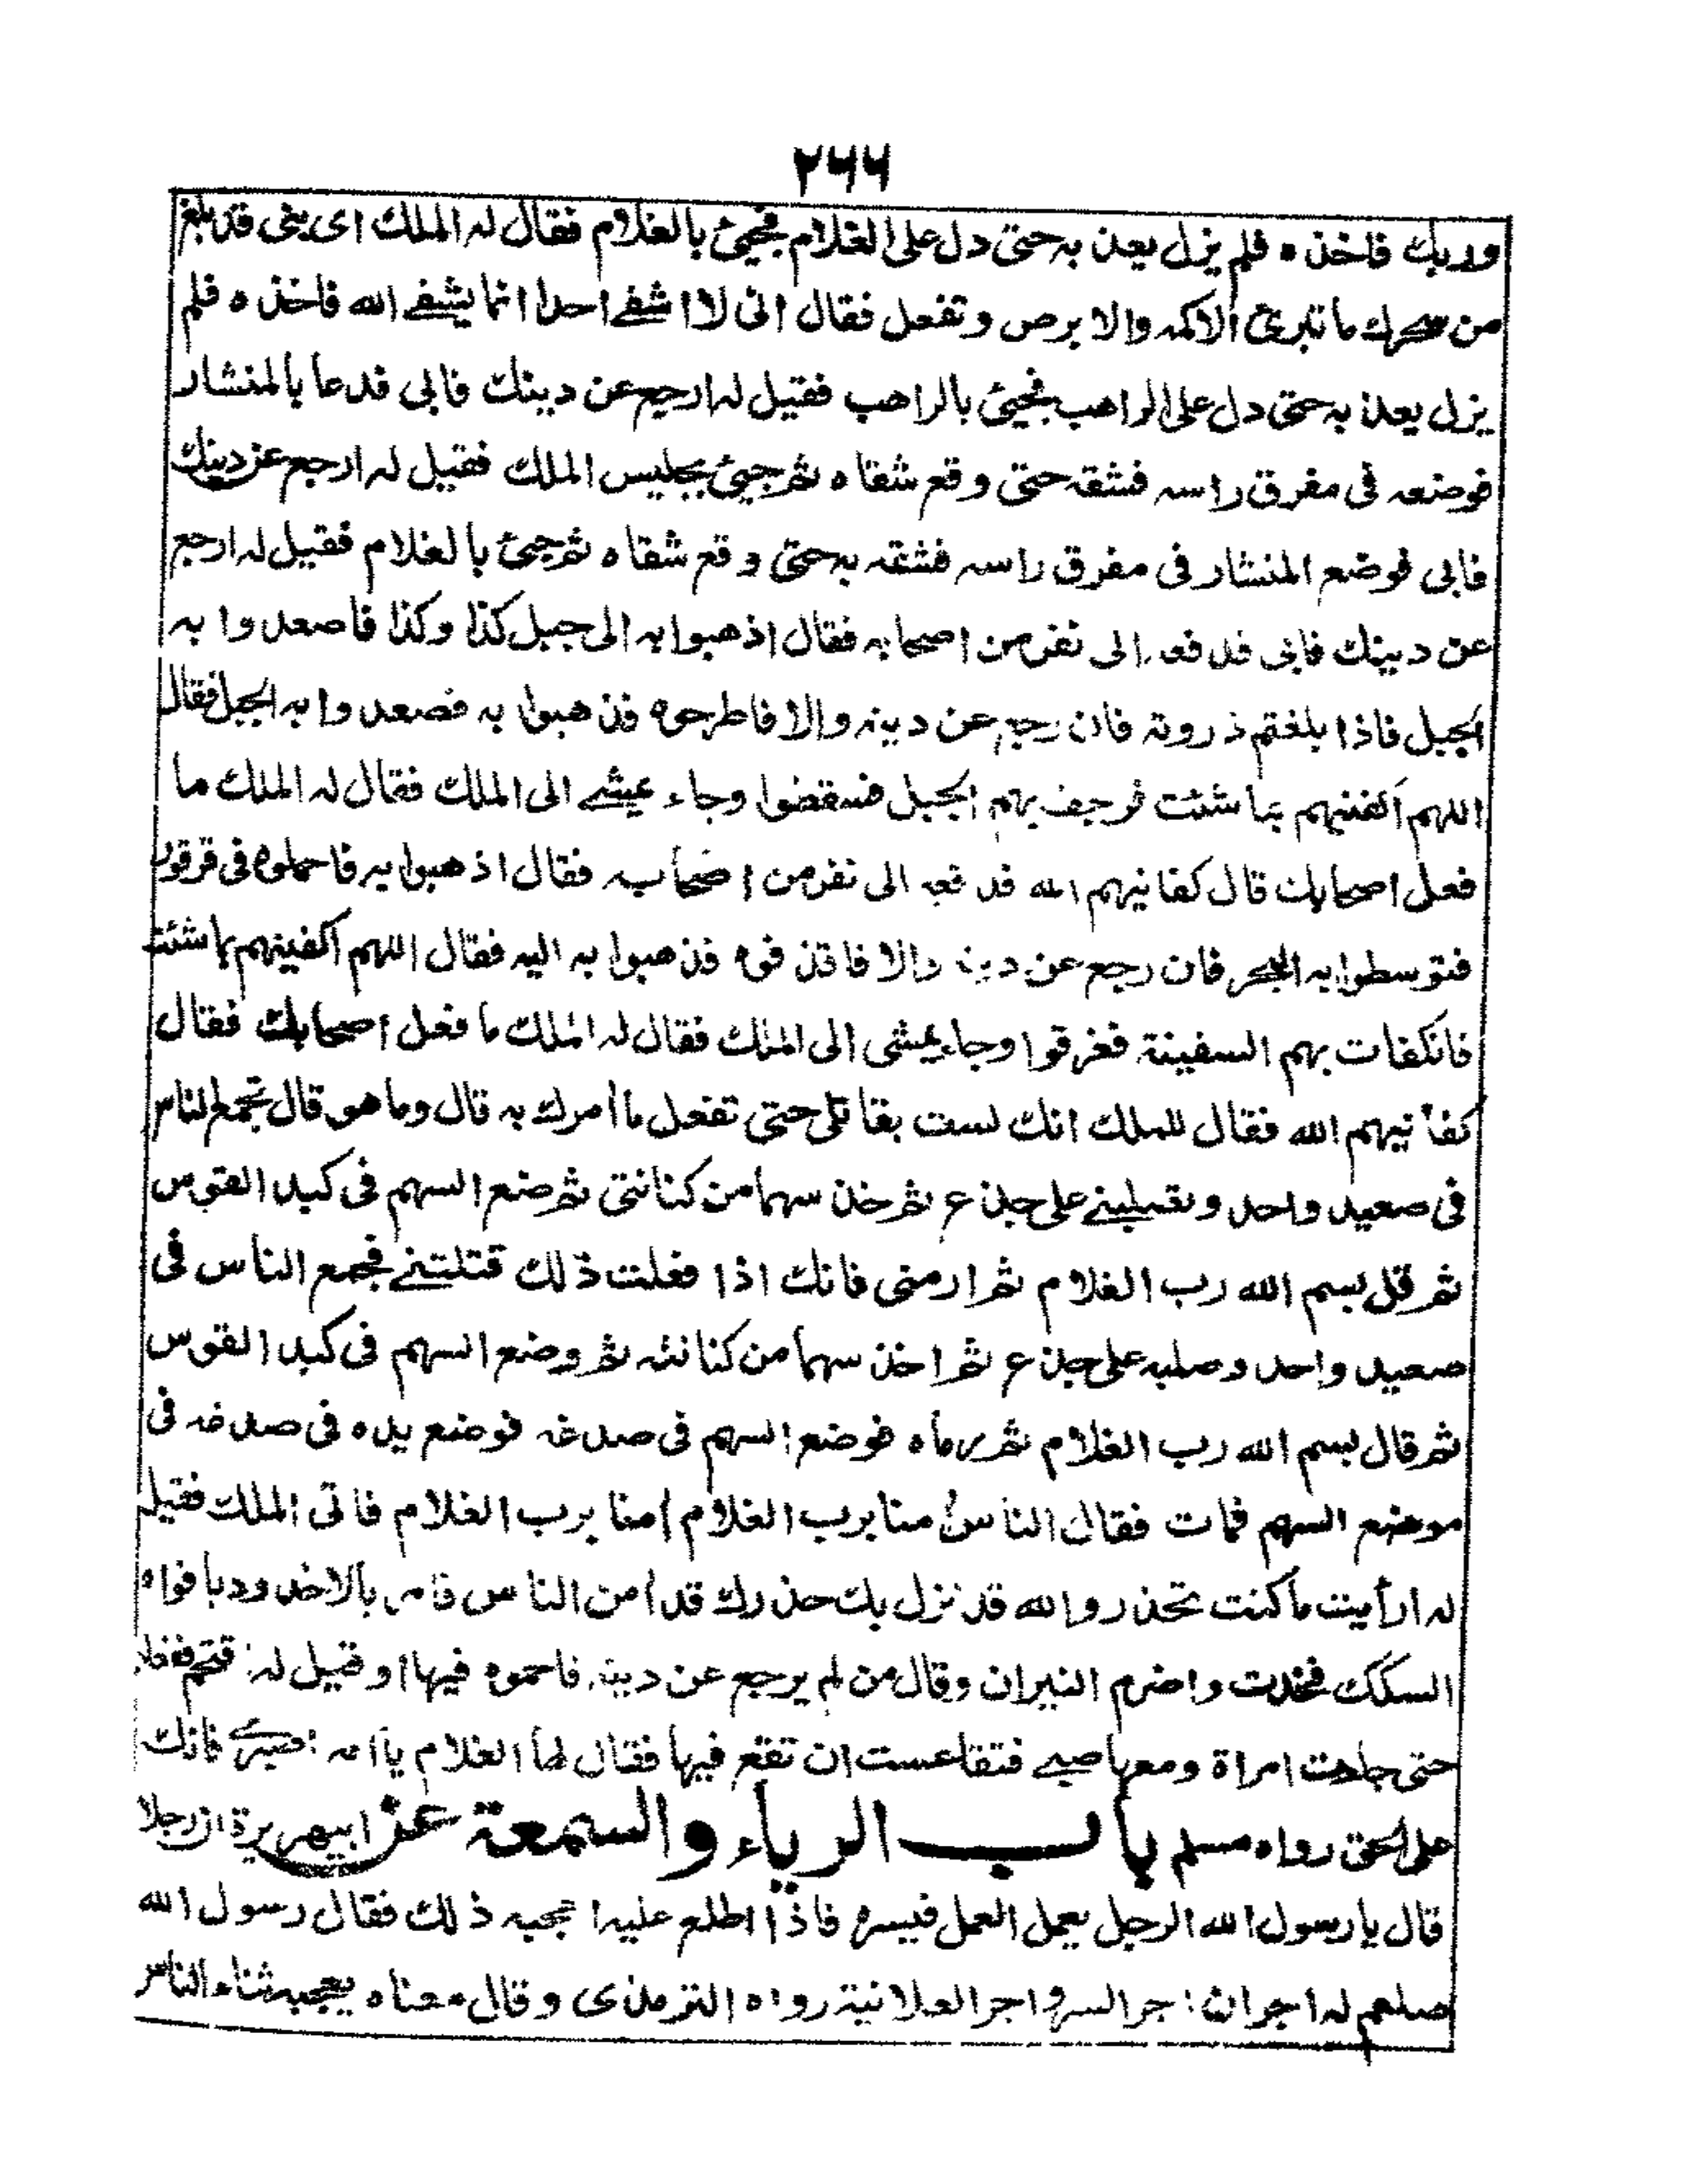 ۲۶۶
وربك فاخذه فلم يزل يعذبه حتى دل على الغلام فجيئ بالغلام فقال له الملك اى بنى قد بلغ
من سحرك ما تبرئ الاكمه والابرص وتفعل فقال انى لا اشفے احدا انما يشفے الله فاخذه فلم
يزل يعذبه حتى دل على الراهب فجيئ بالراهب فقيل له ارجع عن دينك فابى فدعا بالمنشار
فوضعه فى مفرق راسه فشقه حتى وقع شقاه ثم جيئ بجليس الملك فقيل له ارجع عن دينك
فابى فوضع المنشار فى مفرق راسه فشقه به حتى وقع شقاه ثم جيئ بالغلام فقيل له ارجع
عن دينك فابى فدفعه الى نفر من اصحابه فقال اذهبوا به الى جبل كذا وكذا فاصعدوا به
الجبل فاذا بلغتم ذروته فان رجع عن دينه والا فاطرحوه فذهبوا به فصعدوا به الجبل فقال
اللهم اكفنيهم بما شئت فرجف بهم الجبل فسقطوا وجاء يمشے الى الملك فقال له الملك ما
فعل اصحابك قال كفانيهم الله فدفعه الى نفر من اصحابه فقال اذهبوا به فاحملوه فى قرقور
فتوسطوا به البحر فان رجع عن دينه والا فاقذفوه فذهبوا به اليه فقال اللهم اكفينهم بما شئت
فانكفات بهم السفينة فغرقوا وجاء يمشى الى الملك فقال له الملك ما فعل اصحابك فقال
كفانيهم الله فقال للملك انك لست بقاتلى حتى تفعل ما أمرك به قال وما هو قال تجمع الناس
فى صعيد واحد وتصلبنے على جذع ثم خذ سهما من كنانتى ثم ضع السهم فى كبد القوس
ثم قل بسم الله رب الغلام ثم ارمنى فانك اذا فعلت ذلك قتلتنے فجمع الناس فى
صعيد واحد وصلبه على جذع ثم اخذ سهما من كنانته ثم وضع السهم فى كبد القوس
ثم قال بسم الله رب الغلام ثم رماه فوضع السهم فى صدغه فوضع يده فى صدغه فى
موضع السهم فمات فقال الناس أمنا برب الغلام أمنا برب الغلام فاتى الملك فقيل
له ارأيت ما كنت تحذر والله قد نزل بك حذرك قد أمن الناس فامر بالاخدود بافواه
السكك فخدت واضرم النيران وقال من لم يرجع عن دينه فاحموه فيها او قيل له اقتحم ففعلوا
حتى جاءت امراة ومعها صبے فتقاعست ان تقع فيها فقال لها الغلام يا امه اصبرے فانك
على الحق رواه مسلم باب الرياء والسمعة عن ابيهريرة ان رجلا
قال يا رسول الله الرجل يعمل العمل فيسره فاذا اطلع عليه اعجبه ذلك فقال رسول الله
صلعم له اجران اجر السر واجر العلانية رواه الترمذى وقال معناه يعجبه ثناء الناس